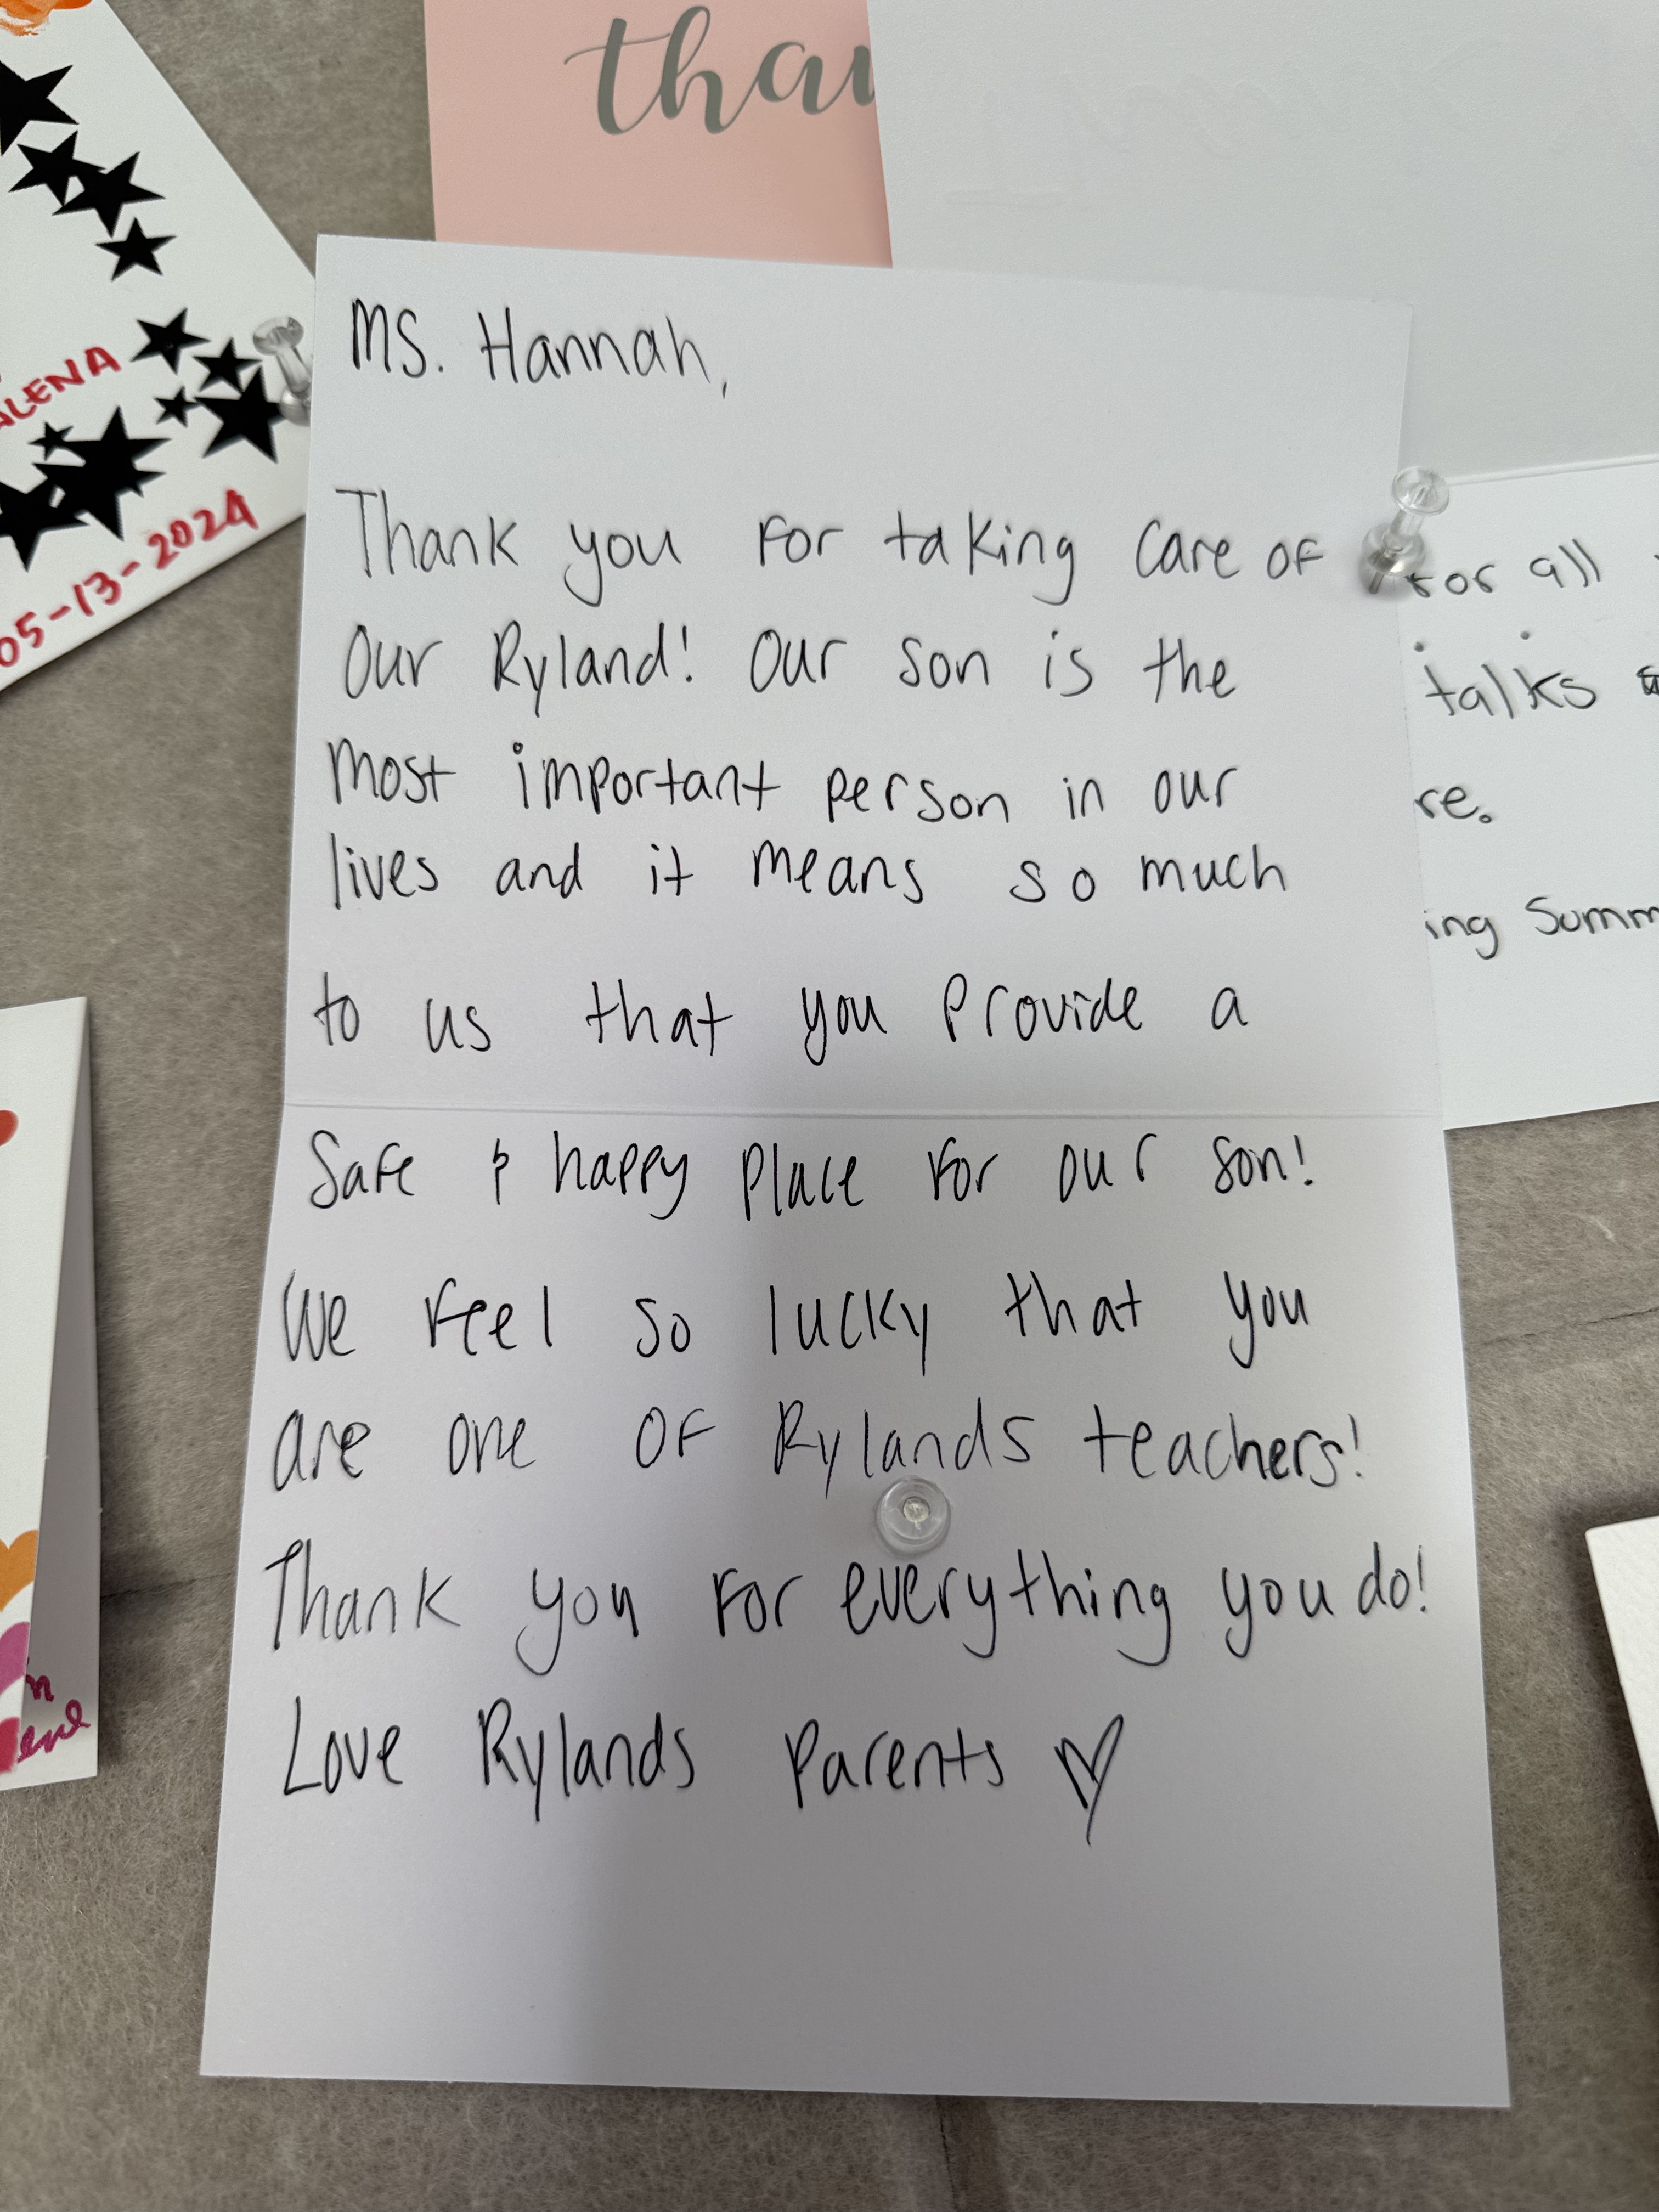 than
ALENA
05-13-2024
Ms. Hannah,
Thank you for taking care of
our Ryland! Our son is the
most important person in our
lives and it means so much
to us that you provide a
safe & happy place for our son!
We feel so lucky that you
are one of Rylands teachers!
Thank you for everything you do!
Love Rylands Parents ♡
for all
talks
re.
ing Summ